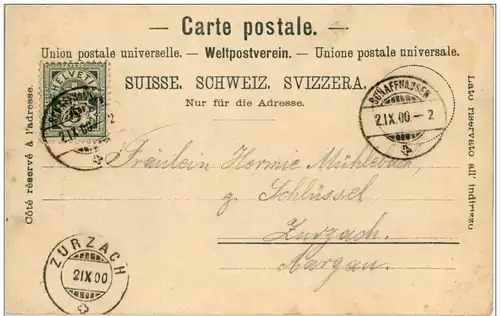 — Carte postale. —
Union postale universelle. – Weltpostverein. – Unione postale universale.
SUISSE. SCHWEIZ. SVIZZERA.
Nur für die Adresse.
Côté réservé à l'adresse.
Lato riservato all' indirizzo
HELVETIA
SCHAFFHAUSEN
2.IX.00 – 2
SCHAFFHAUSEN
2.IX.00 – 2
Fräulein Hermie Mühlebach,
z. Schlüssel
Zurzach.
Aargau.
ZURZACH
2.IX.00